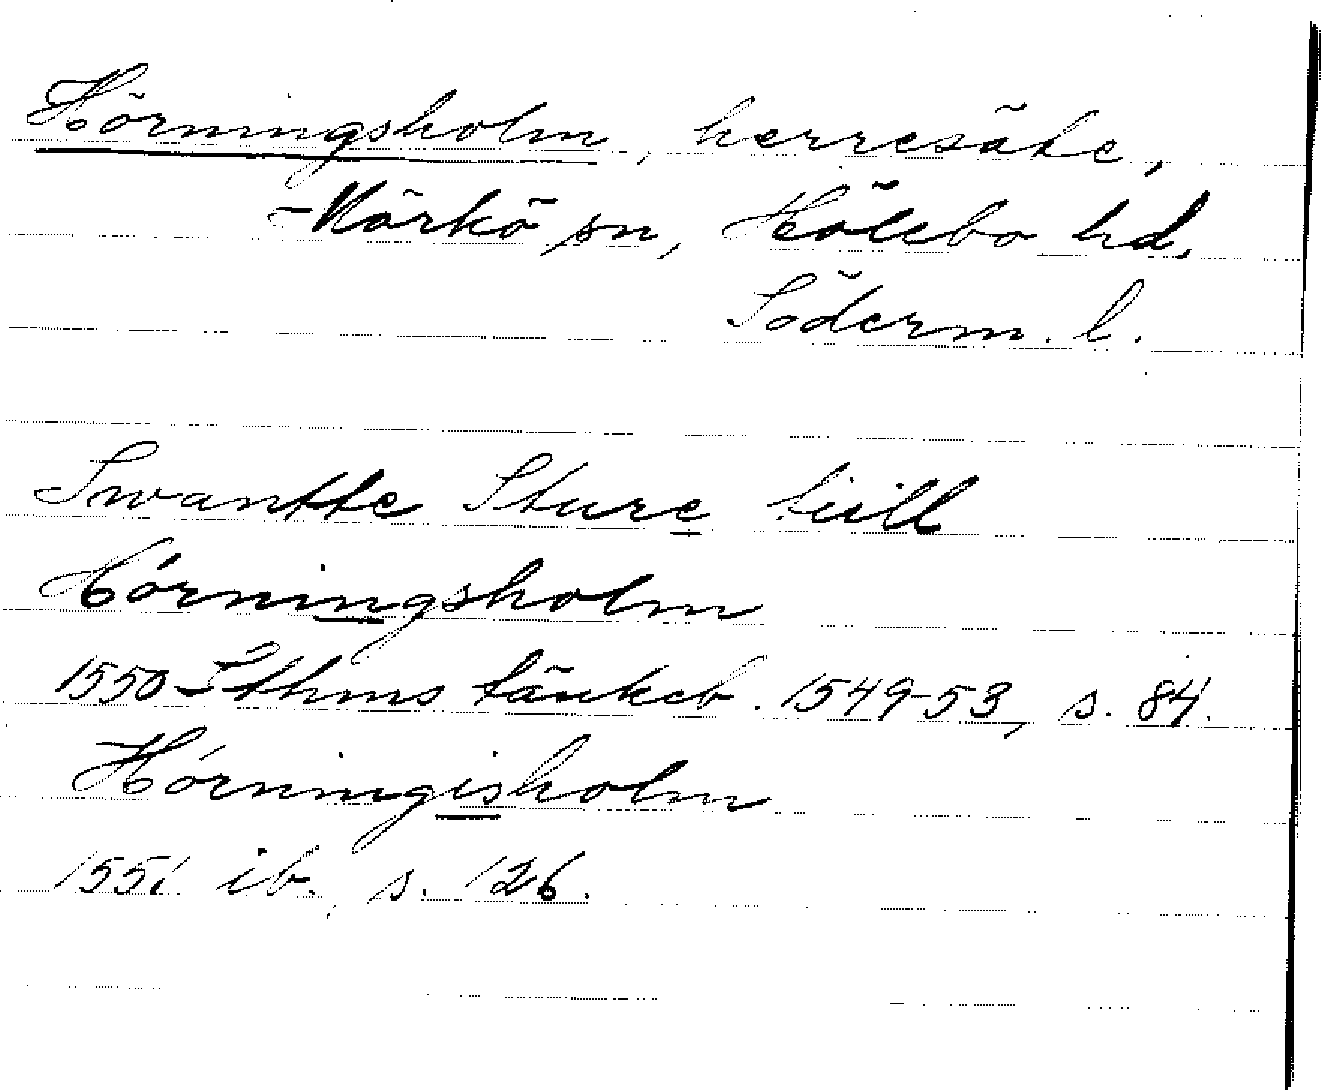 Hörningsholm, herresäte,
Mörkö sn, Hölebo hd.
Söderm. l.
Swantte Sture tiill
Hórningsholm
1550 Sthms tänkeb. 1549-53, s. 84.
Hórningisholm
1551 ib., s. 126.